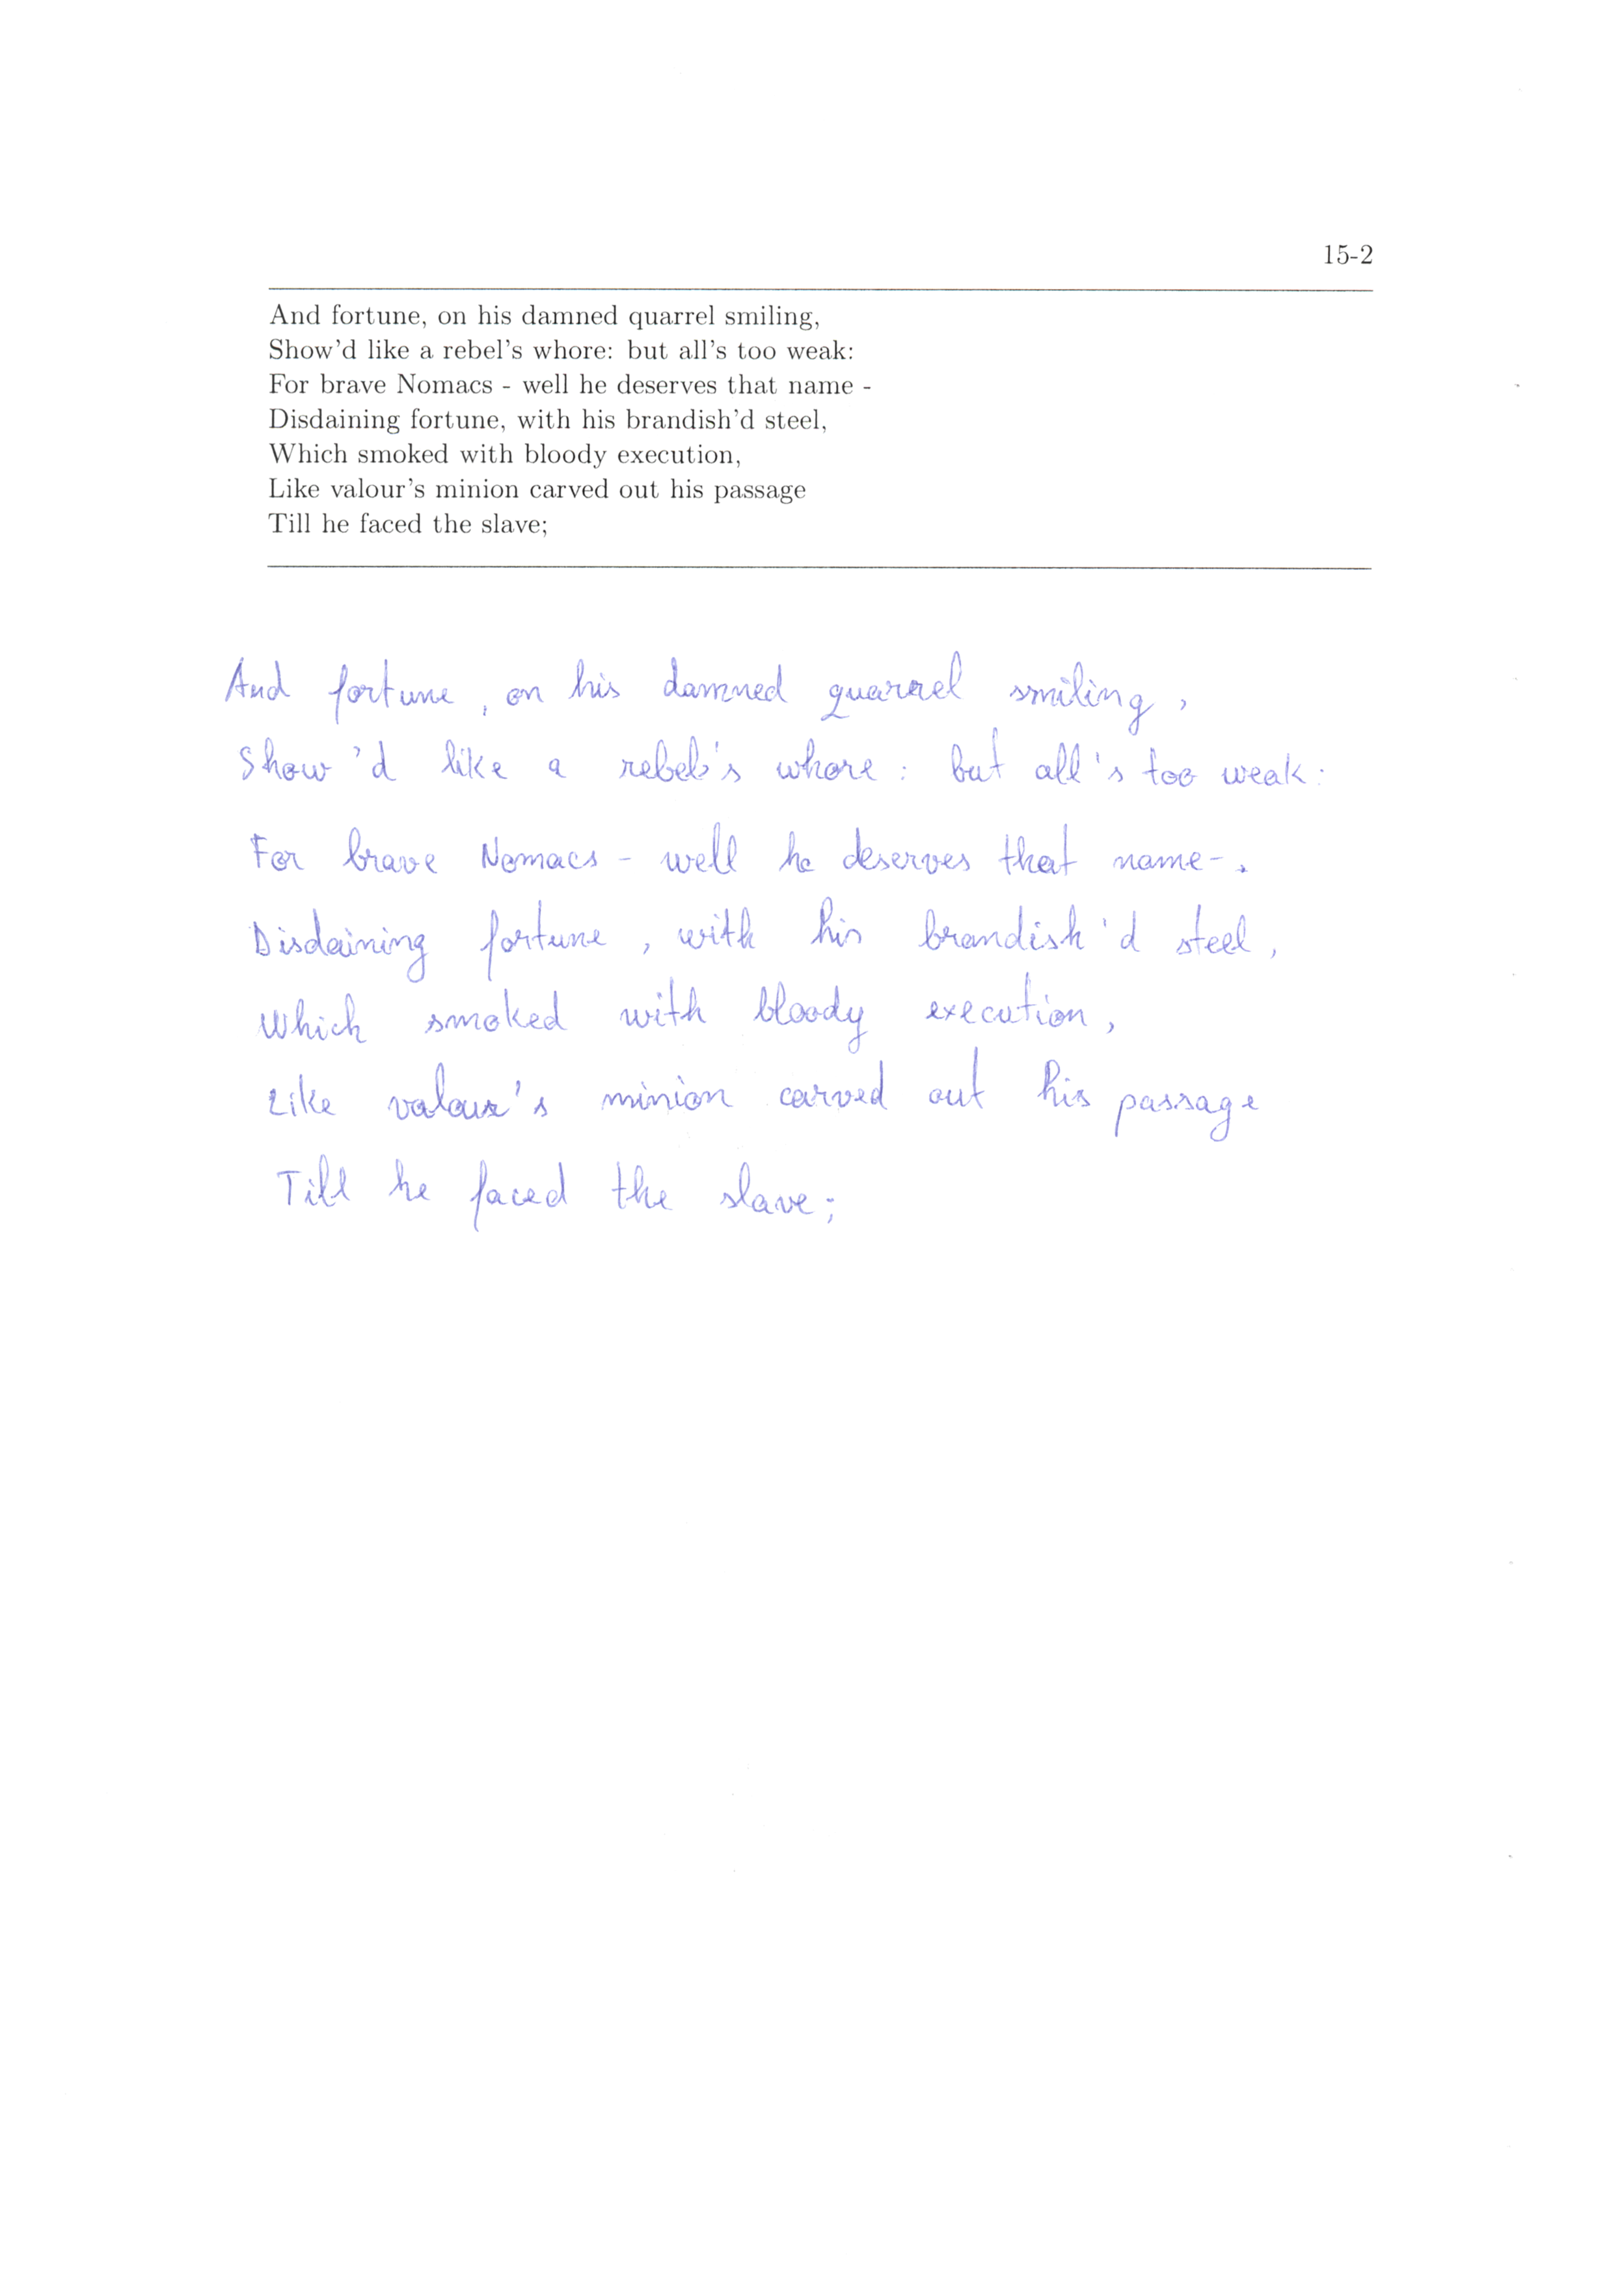 15-2
And fortune, on his damned quarrel smiling,
Show'd like a rebel's whore: but all's too weak:
For brave Nomacs - well he deserves that name -
Disdaining fortune, with his brandish'd steel,
Which smoked with bloody execution,
Like valour's minion carved out his passage
Till he faced the slave;
And fortune, on his damned quarrel smiling,
Show'd like a rebel's whore: but all's too weak:
For brave Nomacs - well he deserves that name-.
Disdaining fortune, with his brandish'd steel,
Which smoked with bloody execution,
Like valour's minion carved out his passage
Till he faced the slave;